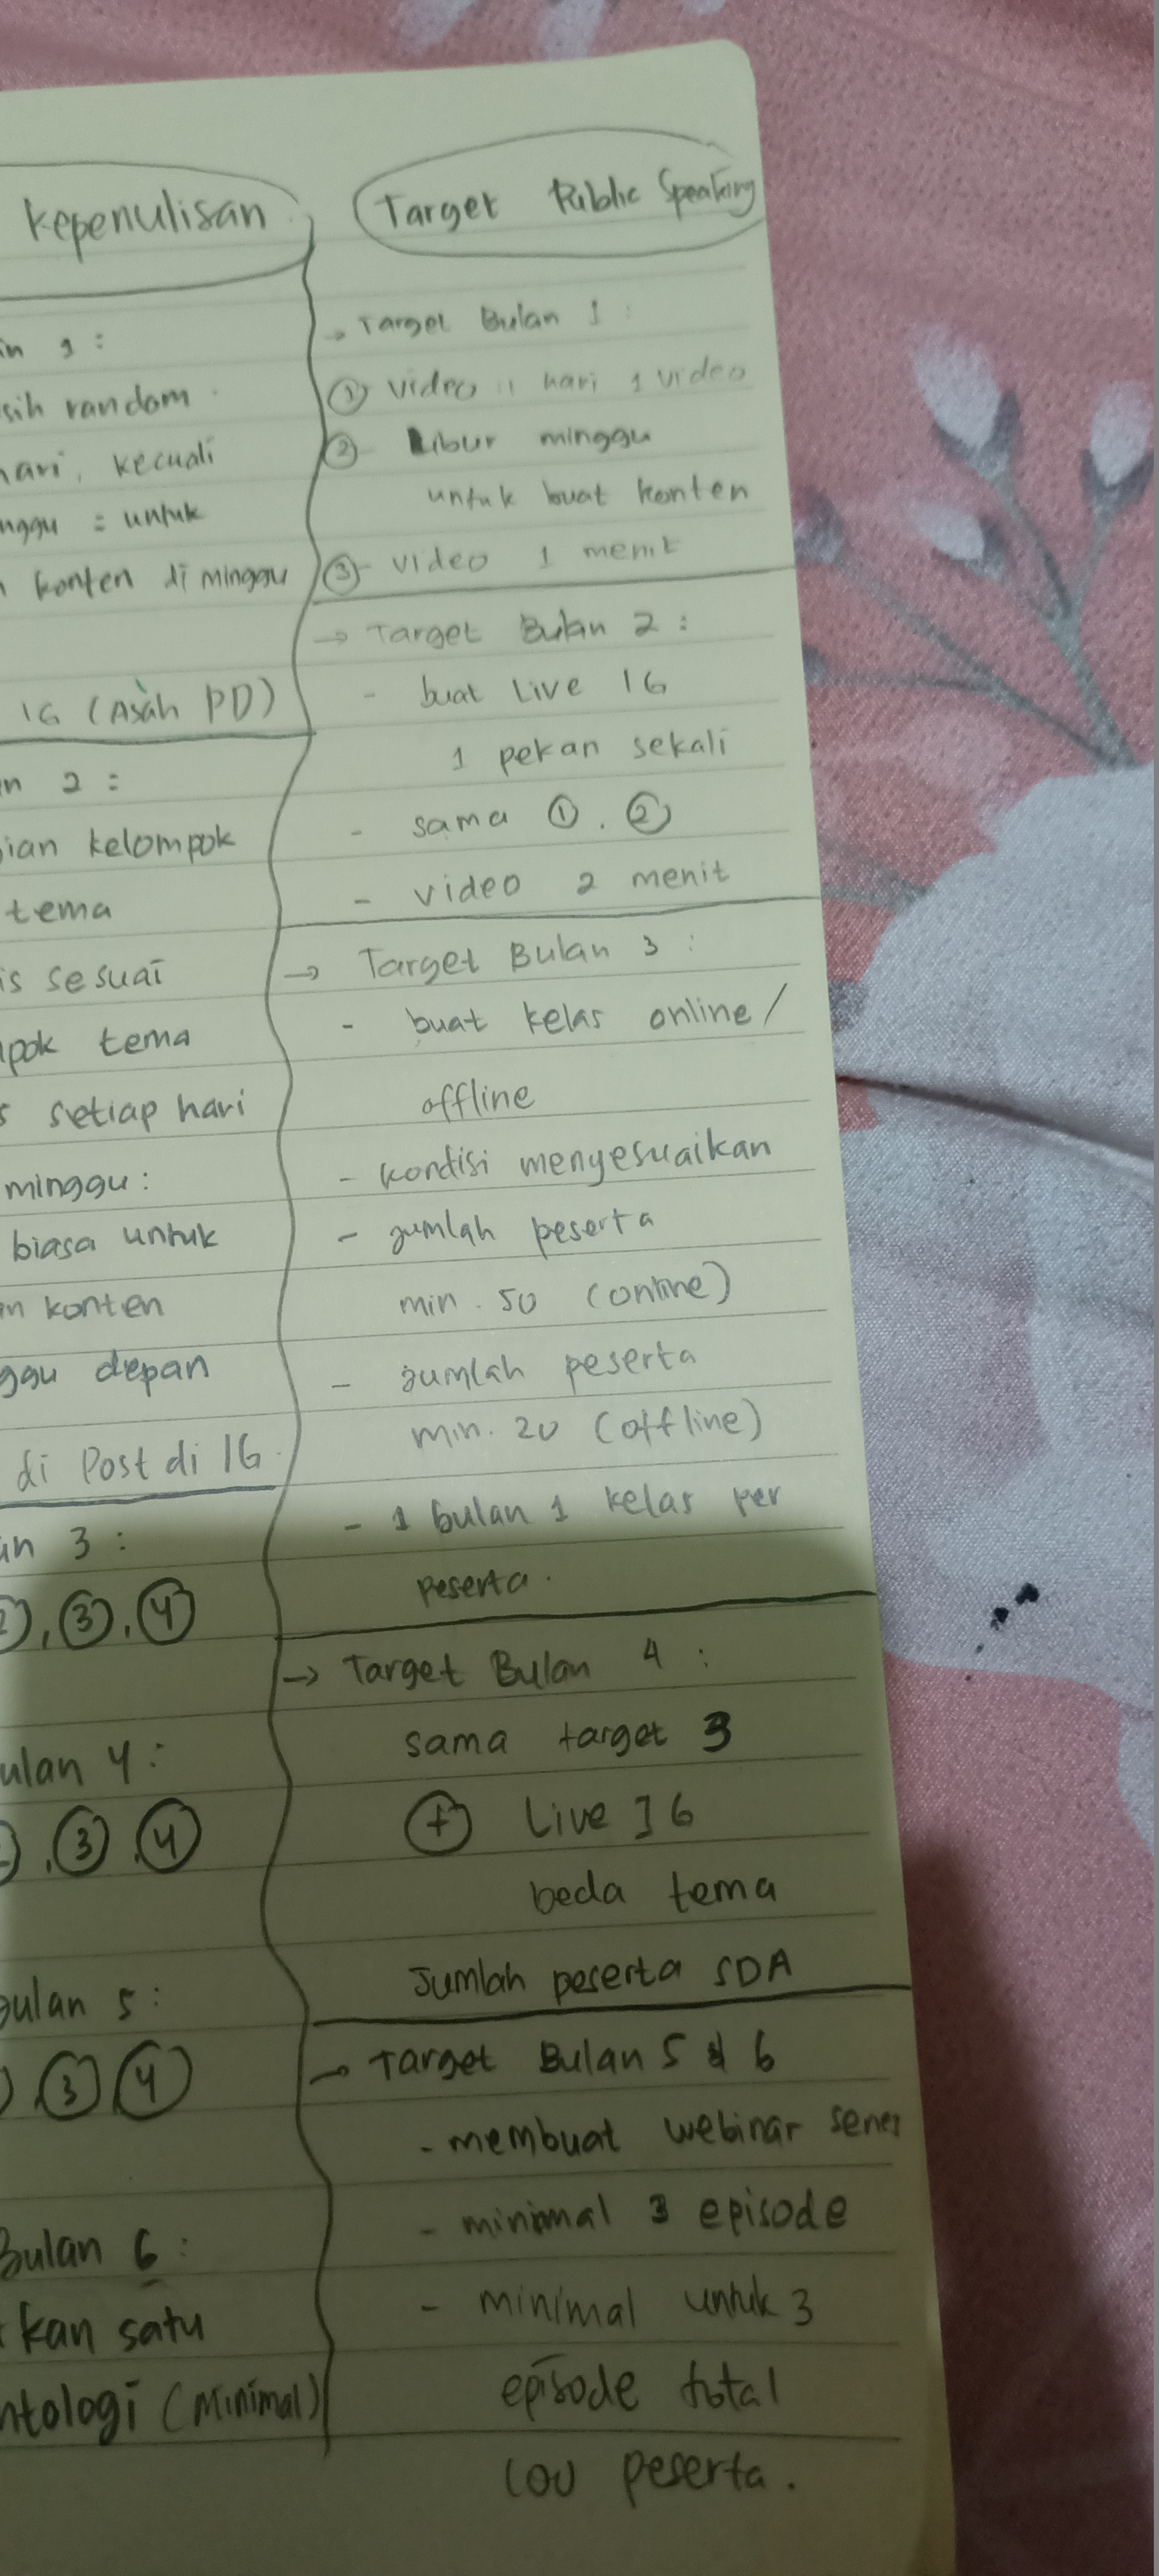 Kepenulisan
sih random
hari, kecuali
= untuk
konten di minggu
IG (Asah PD)
2 :
kelompok
tema
sesuai
tema
setiap hari
minggu:
biasa untuk
konten
depan
di Post di IG.
3 :
, ③, ④
ulan 4 :
, ③, ④
ulan 5 :
③ ④
Bulan 6 :
kan satu
ntologi (Minimal)
Target Public Speaking
→ Target Bulan 1 :
① video 1 hari 1 video
② Libur minggu
untuk buat konten
③ video 1 menit
→ Target Bulan 2 :
- buat Live IG
1 pekan sekali
- sama ①, ②
- video 2 menit
→ Target Bulan 3 :
- buat kelas online/
offline
- kondisi menyesuaikan
- jumlah peserta
min. 50 (online)
- jumlah peserta
min. 20 (offline)
- 1 bulan 1 kelas per
peserta.
→ Target Bulan 4 :
sama target 3
⊕ Live IG
beda tema
Jumlah peserta SDA
→ Target Bulan 5 & 6
- membuat webinar series
- minimal 3 episode
- minimal untuk 3
episode total
100 peserta.